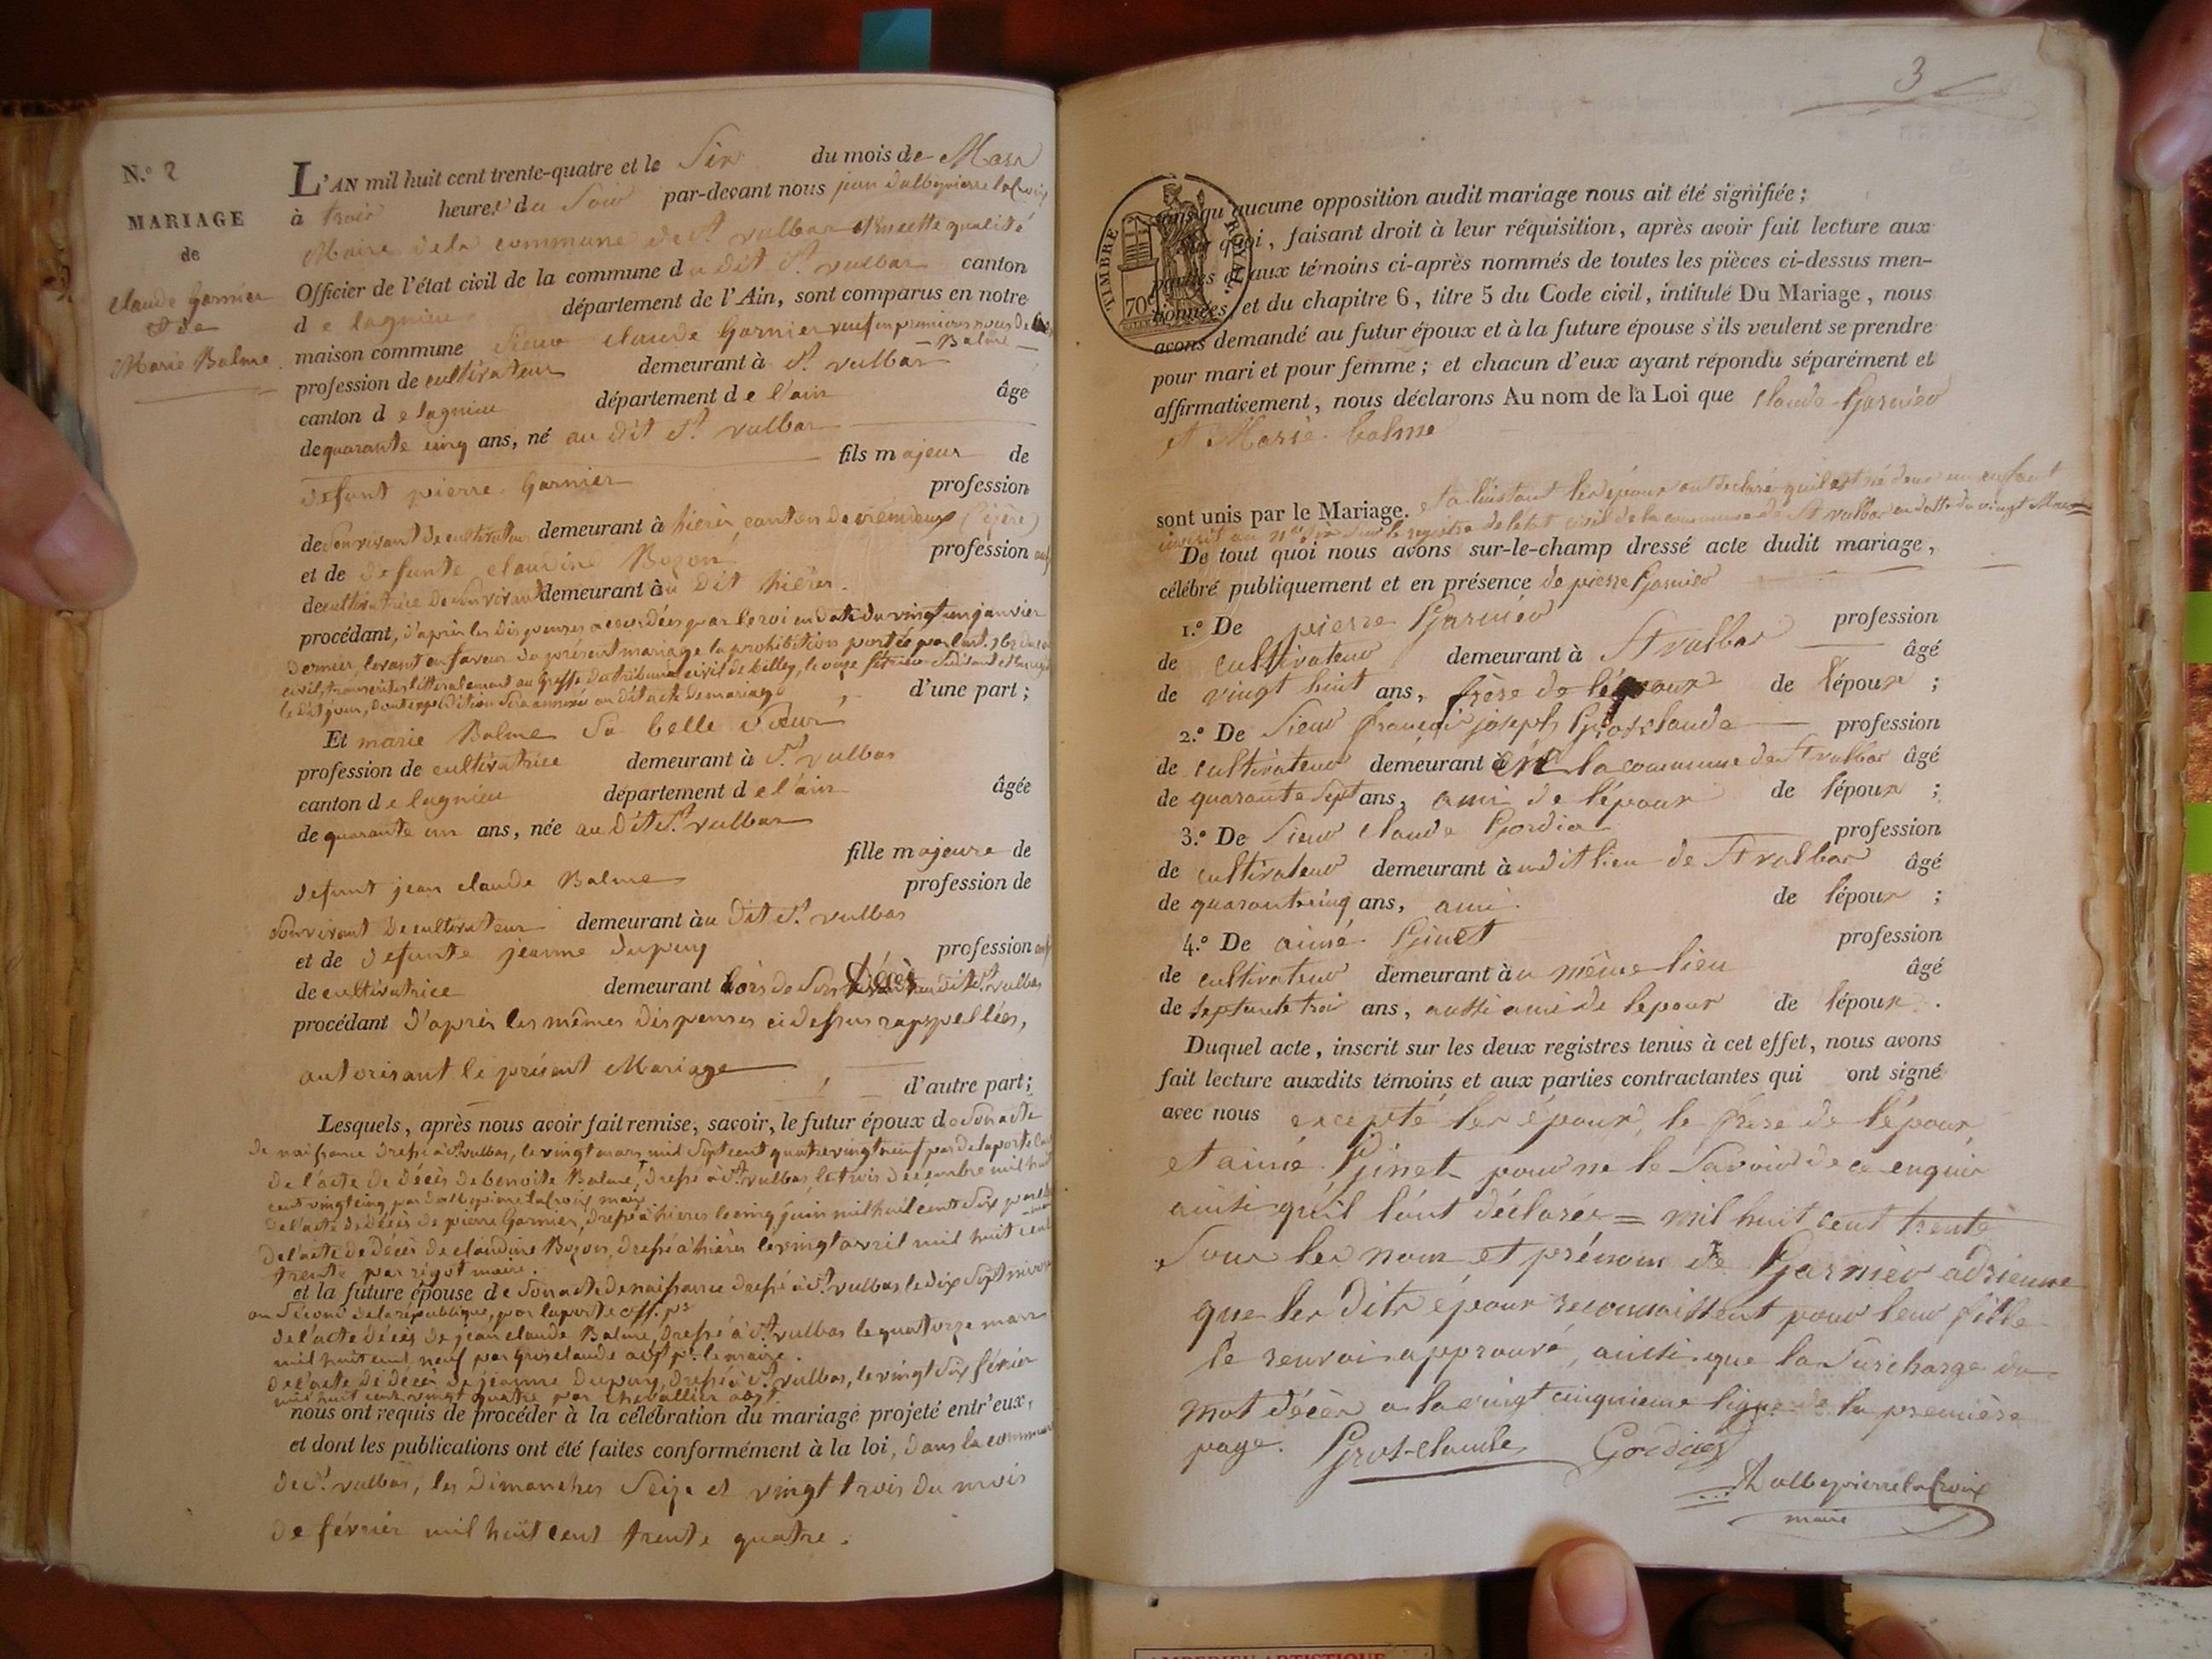 N.º 2
MARIAGE
de
Claude Garnier
et de
Marie Balme
L'AN mil huit cent trente-quatre et le Six du mois de Mars
à trois heures du Soir par-devant nous jean dalbepierre lacroix
Maire de la commune de St vulbas et en cette qualité
Officier de l'état civil de la commune du dit St. vulbas canton
de lagnieu département de l'Ain, sont comparus en notre
maison commune Sieur claude Garnier veuf en premieres noces de
Balme
profession de cultivateur demeurant à St. vulbas
canton de lagnieu département de l'ain âgé
de quarante cinq ans, né au dit St. vulbas
fils majeur de
défunt pierre Garnier profession
de Son vivant de cultivateur demeurant à hières canton de crémieux (isère)
et de defunte claudine Bozon profession
de cultivatrice de Son vivant demeurant àu dit hières.
procédant, d'après les dispenses accordées par le roi en date du vingt un janvier
dernier, levant en faveur du présent mariage la prohibition portée par l'art. 162 du
civil, transcrites littéralement au Greffe du tribunal civil de belley, le onze février
le dit jour, dont expédition Sera annexée au dit acte de mariage d'une part ;
Et marie Balme Sa belle Sœur
profession de cultivatrice demeurant à St vulbas
canton de lagnieu département de l'ain âgée
de quarante un ans, née au dit St. vulbas
fille majeure de
défunt jean claude Balme profession de
Son vivant de cultivateur demeurant àu dit St. vulbas
et de defunte jeanne dupuy profession
de cultivatrice demeurant lors de Son Décès au dit St. vulbas
procédant d'après les mêmes dispenses ci dessus rappellées,
autorisant le présent Mariage d'autre part ;
Lesquels, après nous avoir fait remise, savoir, le futur époux de Son acte
de naissance dressé à St. vulbas, le vingt mars mil Sept cent quatre vingt neuf par delaporte
de l'acte de décès de benoite Balme, dressé à St. vulbas, le trois décembre mil huit
cent vingt cinq par dalbepierre lacroix maire
de l'acte de décès de pierre Garnier, dressé à hieres le cinq juin mil huit cent Six par
de l'acte de Décès de claudine Bozon, dressé à hières le vingt avril mil huit cent
trente par rigot maire.
et la future épouse de Son acte de naissance dressé à St. vulbas le dix Sept nivose
an Second de la république, par laporte off. pc
de l'acte décès de jean claude Balme, dressé à St. vulbas le quatorze mars
mil huit cent neuf par Grosclaude adjt pr. le maire.
de l'acte de décès de jeanne dupuy, dressé à St. vulbas, le vingt Six février
mil huit cent vingt quatre par chevallier adjt.
nous ont requis de procéder à la célébration du mariage projeté entr'eux,
et dont les publications ont été faites conformément à la loi, dans la commune
de St. vulbas, les dimanches Seize et vingt trois du mois
de février mil huit cent trente quatre.
3
TIMBRE ROYAL
70c
sans qu'aucune opposition audit mariage nous ait été signifiée ;
Sur quoi, faisant droit à leur réquisition, après avoir fait lecture aux
parties et aux témoins ci-après nommés de toutes les pièces ci-dessus men-
tionnées, et du chapitre 6, titre 5 du Code civil, intitulé Du Mariage, nous
avons demandé au futur époux et à la future épouse s'ils veulent se prendre
pour mari et pour femme ; et chacun d'eux ayant répondu séparément et
affirmativement, nous déclarons Au nom de la Loi que Claude Garnier
et Marie balme
sont unis par le Mariage. et a l'instant les époux ont déclaré qu'il est né deux un enfant
inscrit au nº dix Sur le registre de letat civil de la commune de St vulbas en datte du vingt Mars
De tout quoi nous avons sur-le-champ dressé acte dudit mariage,
célébré publiquement et en présence de pierre Garnier
1.º De pierre Garnier profession
de cultivateur demeurant à St vulbas âgé
de vingt huit ans, frère de l'époux de l'époux ;
2.º De Sieur françois joseph Grosclaude profession
de cultivateur demeurant en la commune de St vulbas âgé
de quarante Sept ans, ami de l'époux de l'époux ;
3.º De Sieur claude Gordia profession
de cultivateur demeurant àu dit lieu de St vulbas âgé
de quarante cinq ans, ami de l'époux ;
4.º De aimé Ginet profession
de cultivateur demeurant àu même lieu âgé
de septante trois ans, aussi ami de l'epoux de l'époux.
Duquel acte, inscrit sur les deux registres tenus à cet effet, nous avons
fait lecture auxdits témoins et aux parties contractantes qui ont signé
avec nous excepté les époux, le frere de l'époux,
et aimé Ginet pour ne le Savoir de ce enquis
ainsi qu'il l'ont déclarés = mil huit cent trente
Sous les nom et prénom de Garnier adrienne
que les dits époux reconnaissent pour leur fille
le renvoi approuvé, ainsi que la Surcharge du
mot décès a la vingt cinquieme ligne de la premiere
page. Gros-claude Gordiaz
Dalbepierrelacroix
maire